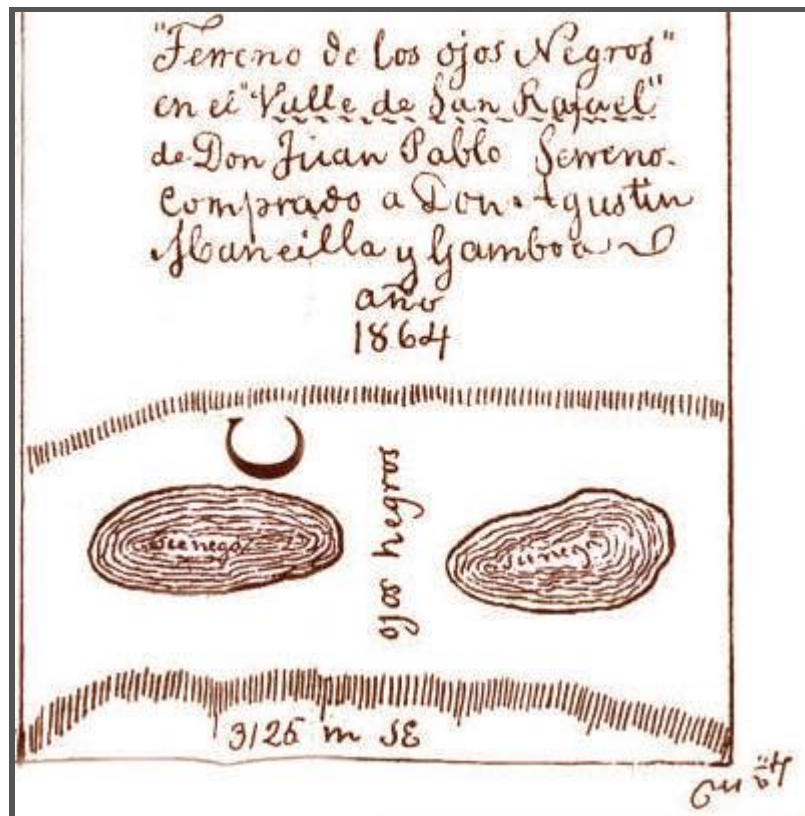 "Terreno de los ojos Negros"
en el "Valle de San Rafael"
de Don Juan Pablo Serreno.
Comprado a Don Agustin
Mancilla y Gamboa
año
1864
ojos negros
Sienega
Sienega
3125 m SE